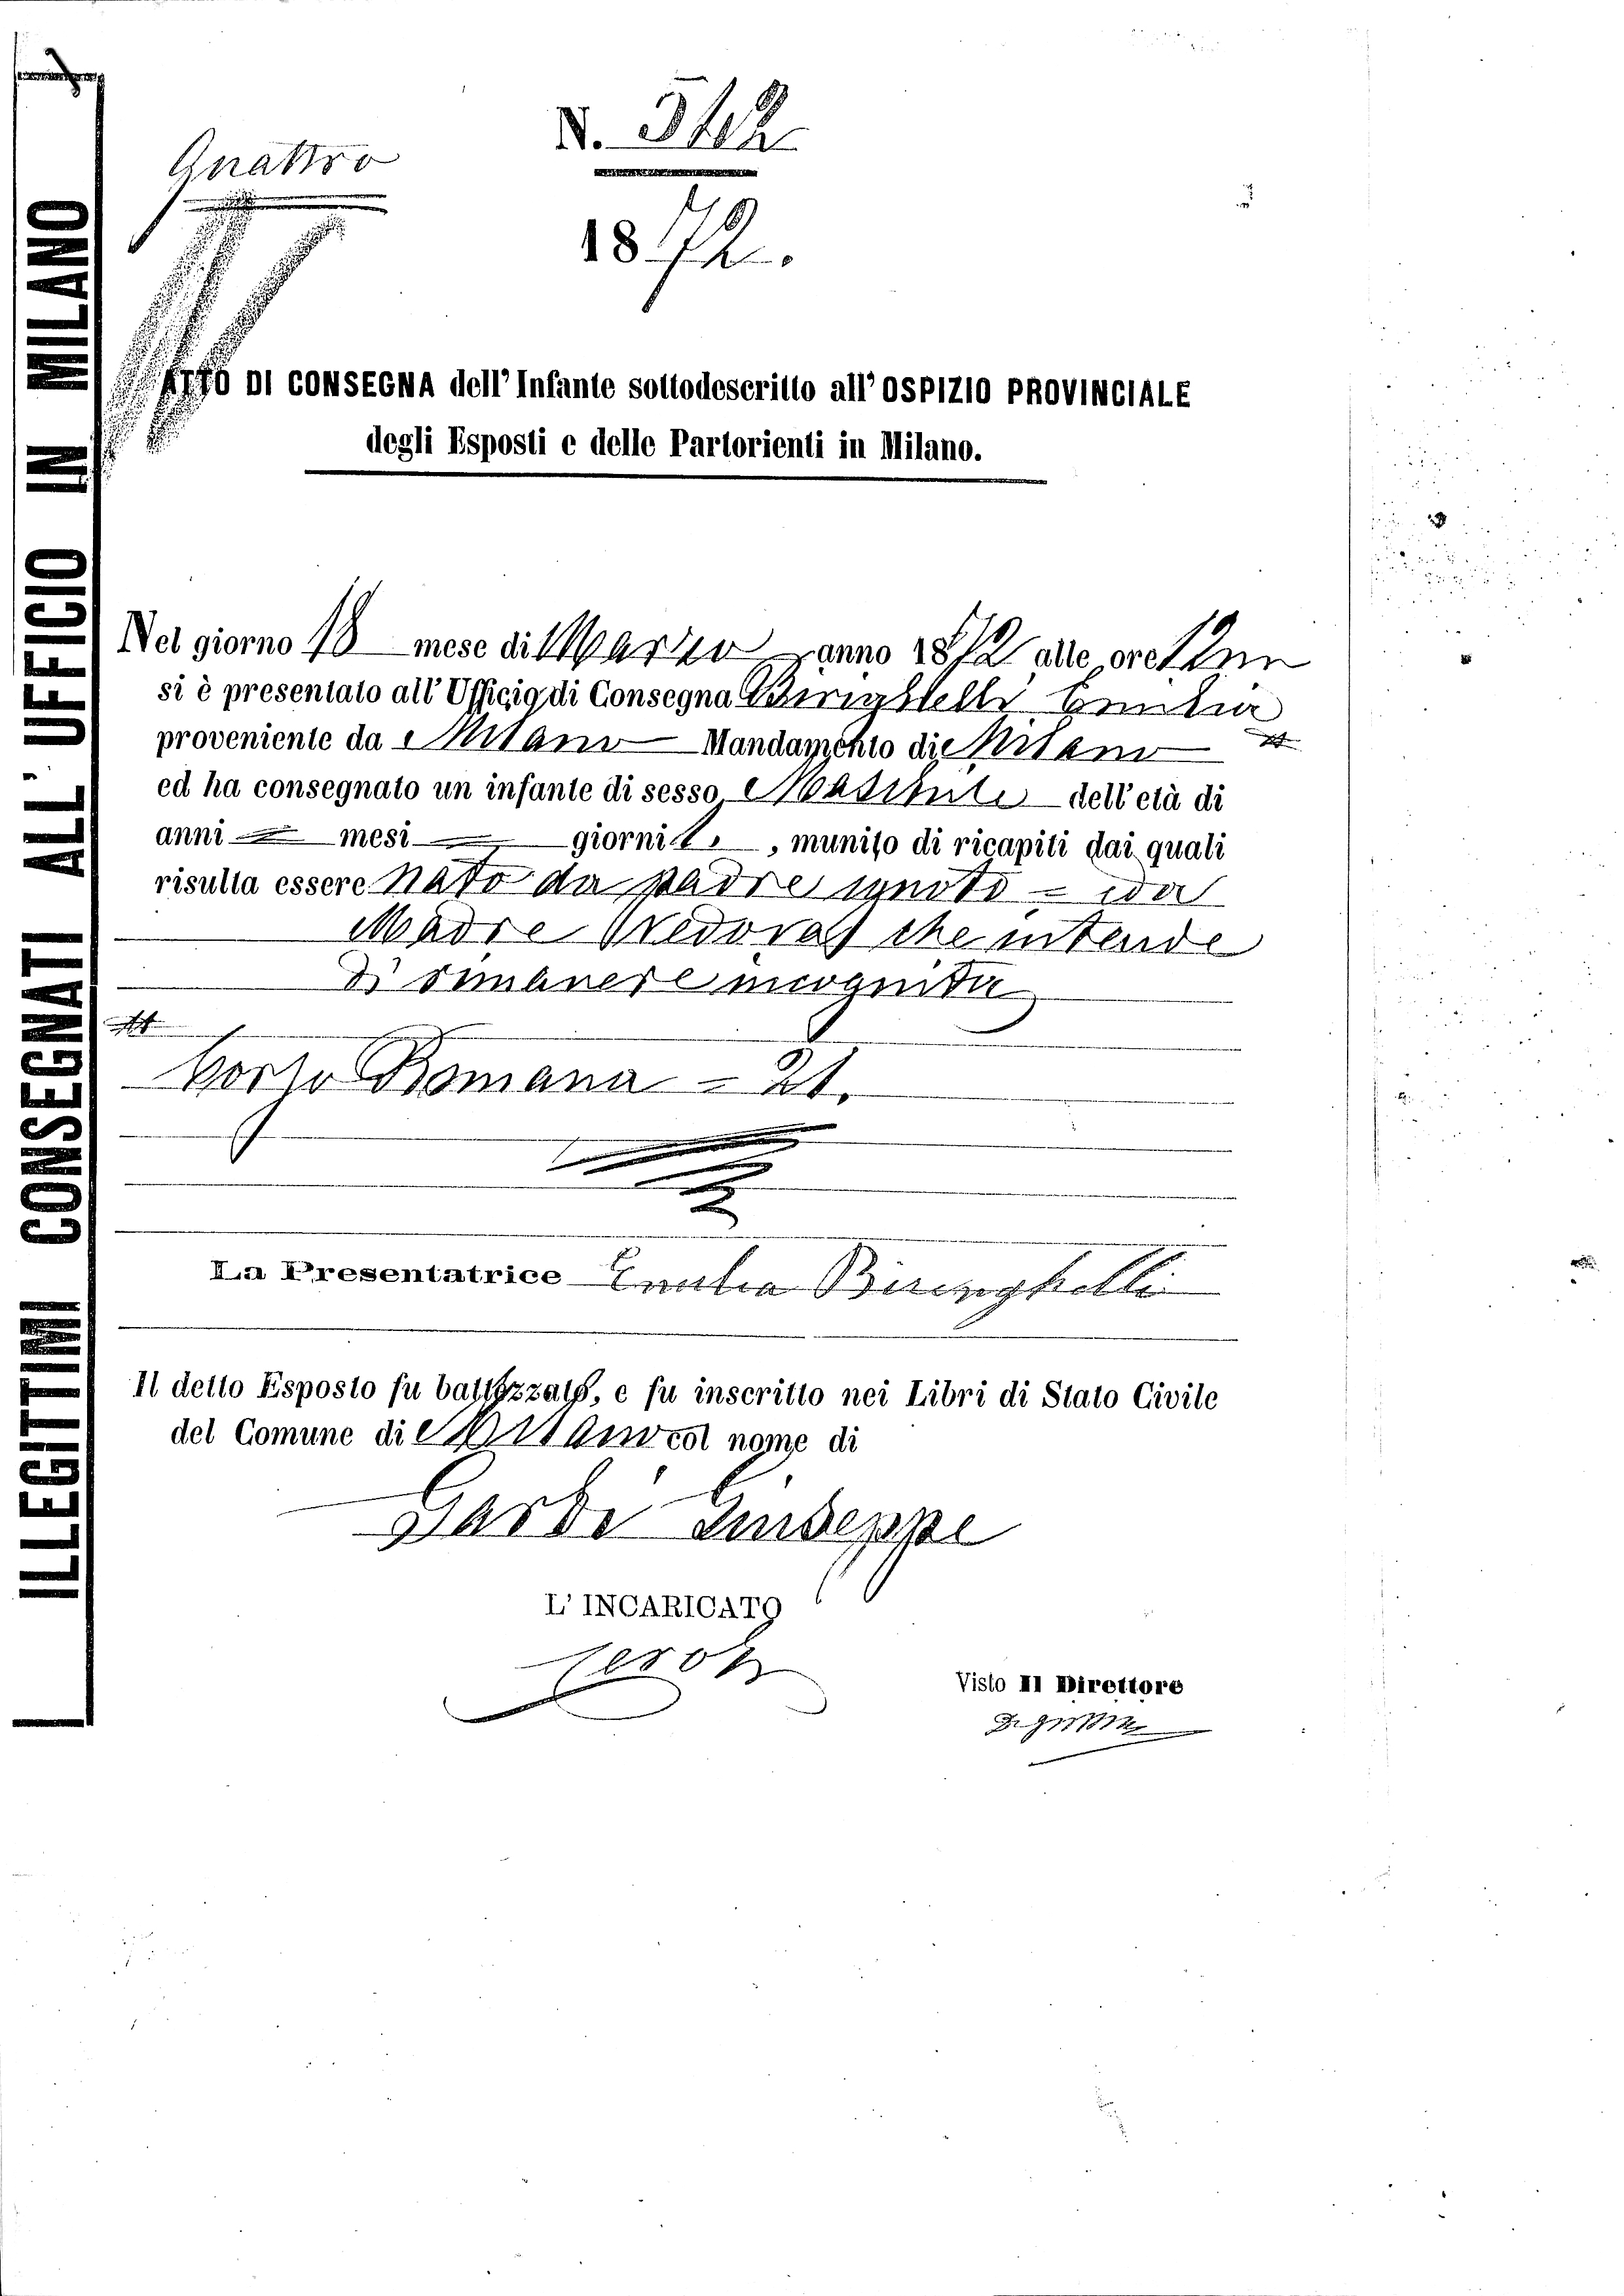 ILLEGITTIMI CONSEGNATI ALL'UFFICIO IN MILANO
Quattro
N. 542
1872.
ATTO DI CONSEGNA dell'Infante sottodescritto all'OSPIZIO PROVINCIALE
degli Esposti e delle Partorienti in Milano.
Nel giorno 18 mese di Marzo anno 1872 alle ore
si è presentato all'Ufficio di Consegna Biringhelli Emilia
proveniente da Milano Mandamento di Milano
ed ha consegnato un infante di sesso Maschile dell'età di
anni — mesi — giorni 1. , munito di ricapiti dai quali
risulta essere nato da padre ignoto - da
Madre Vedova che intende
di rimanere incognita
Corso Romana - 21.
La Presentatrice Emilia Biringhelli
Il detto Esposto fu battezzato, e fu inscritto nei Libri di Stato Civile
del Comune di Milano col nome di
Garbi Giuseppe
L'INCARICATO
Visto Il Direttore